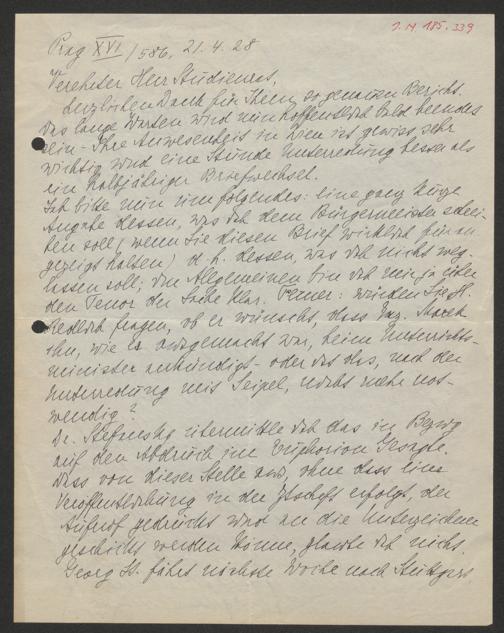 I.N. 185.339
Prag XVI/586, 21.4.28
Verehrter Herr Studienrat,
herzlichen Dank für Ihren so genauen Bericht.
Das lange Warten wird nun hoffentlich bald beendet
sein - Ihre Anwesenheit in Wien ist gewiss sehr
wichtig und eine Stunde Unterredung besser als
ein halbjähriger Briefwechsel.
Ich bitte nun um folgendes: eine ganz kurze
Angabe dessen, was ich dem Bürgermeister schrei-
ben soll (wenn Sie diesen Brief wirklich für an
gezeigt halten) d.h. dessen, was ich nicht weg-
lassen soll; im Allgemeinen bin ich mir ja über
den Tenor der Sache klar. Ferner: würden Sie H.
Redlich fragen, ob er wünscht, dass
ihn, wie es ausgemacht war, beim Unterrichts-
minister ankündigt - oder ist das, nach der
Unterredung mit Seipel, nicht mehr not-
wendig?
Dr. Stefansky übermittle ich das in Bezug
auf den Abdruck im Euphorion Gesagte.
Dass von dieser Stelle aus, ohne dass eine
Veröffentlichung in der Ztschrft erfolgt, der
Aufruf gedruckt und an die Unterzeichner
geschickt werden könne, glaube ich nicht.
Georg St. fährt nächste Woche nach Stuttgart,